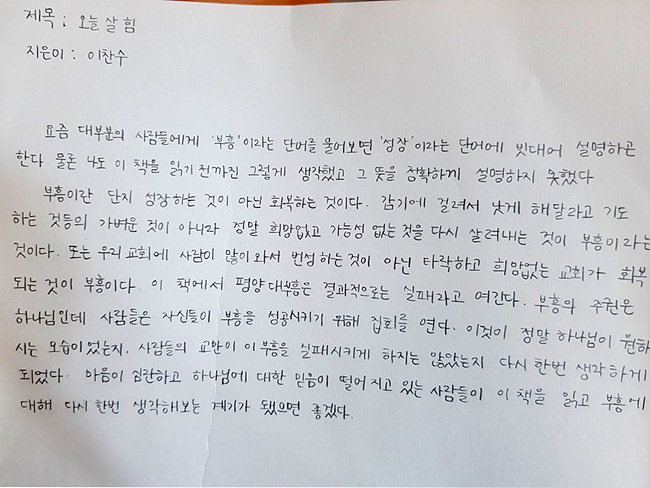 제목 ; 오늘 살 힘
지은이 : 이찬수
요즘 대부분의 사람들에게 '부흥'이라는 단어를 물어보면 '성장'이라는 단어에 빗대어 설명하곤
한다 물론 나도 이 책을 읽기 전까진 그렇게 생각했고 그 뜻을 정확하게 설명하지 못했다
부흥이란 단지 성장하는 것이 아닌 회복하는 것이다. 감기에 걸려서 낫게 해달라고 기도
하는 것등의 가벼운 것이 아니라 정말 희망없고 가능성 없는 것을 다시 살려내는 것이 부흥이라는
것이다. 또는 우리 교회에 사람이 많이 와서 번성하는 것이 아닌 타락하고 희망없는 교회가 회복
되는 것이 부흥이다. 이 책에서 평양 대부흥은 결과적으로는 실패라고 여긴다. 부흥의 주권은
하나님인데 사람들은 자신들이 부흥을 성공시키기 위해 집회를 연다. 이것이 정말 하나님이 원하
시는 모습이었는지, 사람들의 교만이 이 부흥을 실패시키게 하지는 않았는지 다시 한번 생각하게
되었다. 마음이 심란하고 하나님에 대한 믿음이 떨어지고 있는 사람들이 이 책을 읽고 부흥에
대해 다시 한번 생각해보는 계기가 됐으면 좋겠다.